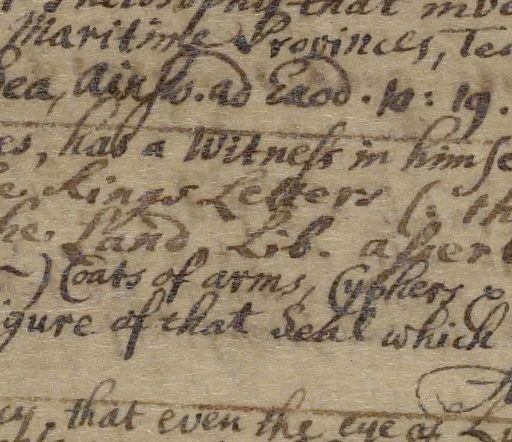 that
Maritime Provinces, Tea
dea, Ainsw. ad Exod. 10: 19.
es, has a Witness in himse
e Kings Letters (: th
he Land Lib.
Coats of arms, Cyphers &
igure of that Seal which
cy, that even the eye of